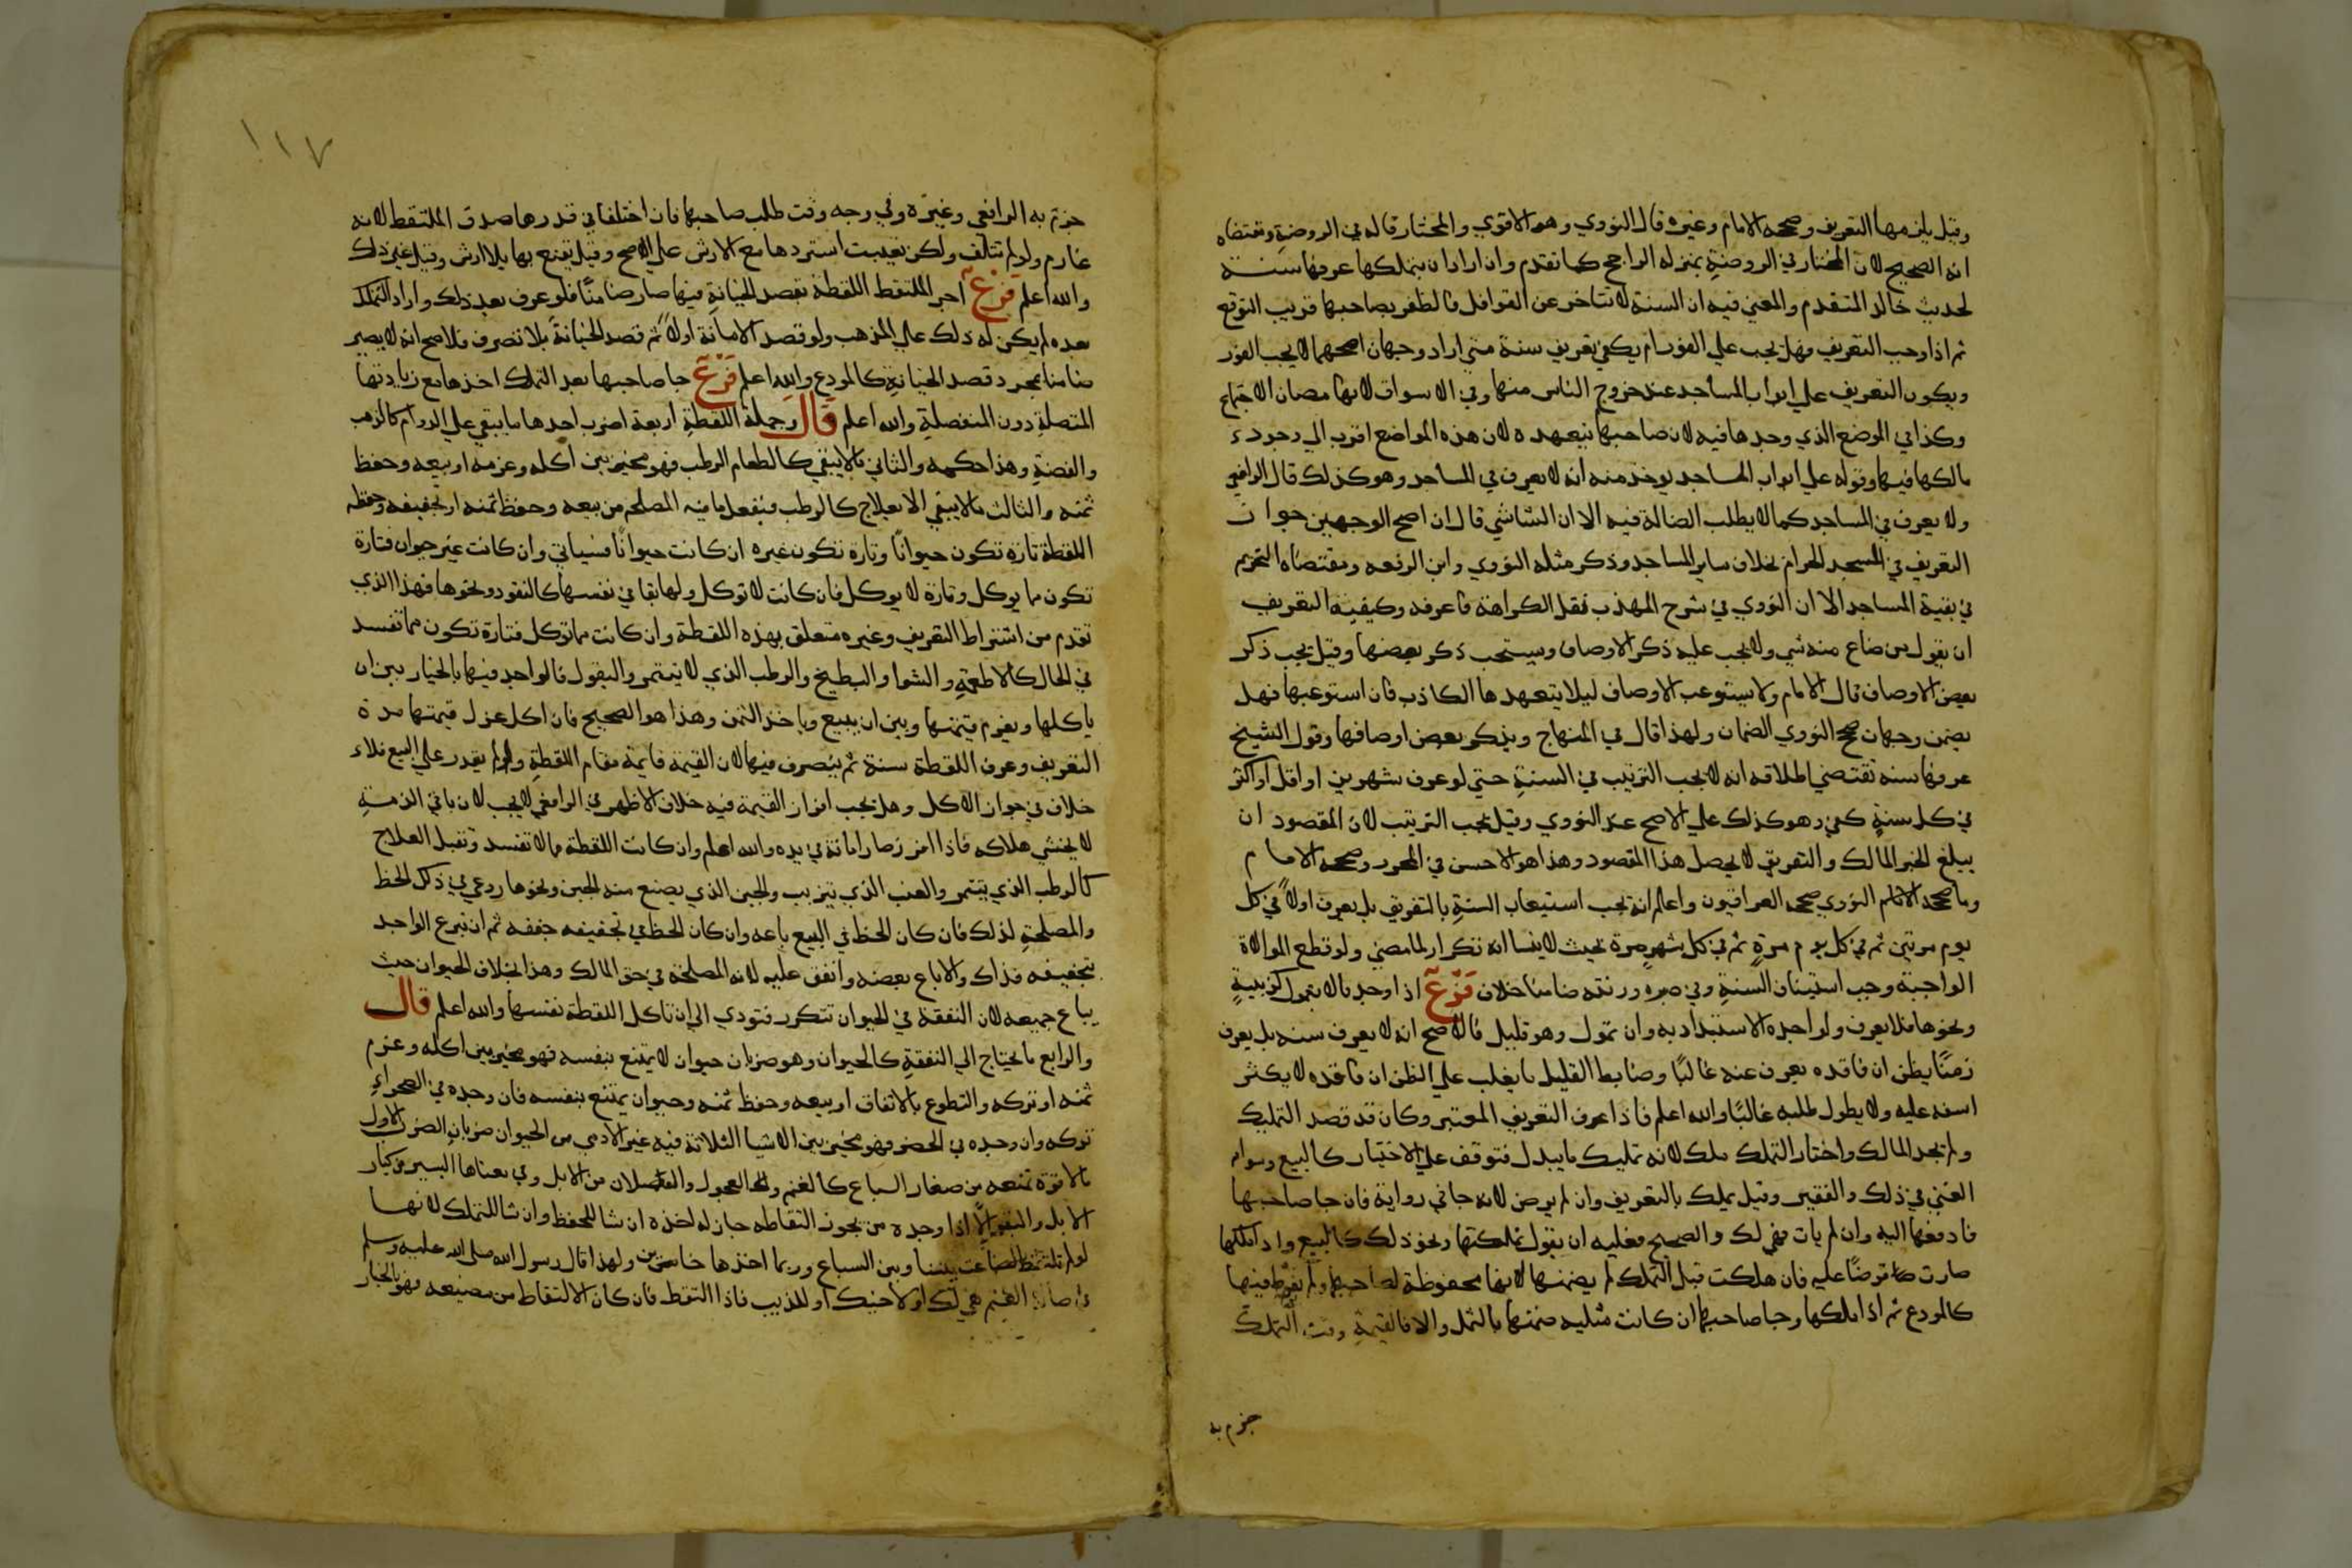 وقيل يلزمها التعريف وصححه الامام وغيره قال النووي وهو الاقوي والمختار قاله في الروضة ومقتضاه
انه الصحيح لان المختار في الروضة بمنزله الراجح كما تقدم وان اراد ان يتملكها عرفها سنة
لحديث خالد المتقدم والمعني فيه ان السنة لا تتاخر عن القوافل فالظفر بصاحبها قريب التوقع
ثم اذا وجب التعريف فهل يجب علي الفور ام يكفي تعريف سنة متي اراد وجهان اصحهما لا يجب الفور
ويكون التعريف علي ابواب المساجد عند خروج الناس منها وفي الاسواق لانها مضان الاجتماع
وكذا في الموضع الذي وجدها فيه لان صاحبها يتعهده لان هذه المواضع اقرب الي وجود
مالكها فيها وقوله علي ابواب المساجد يوخذ منه انه لا يعرف في المساجد وهو كذلك قال الرافعي
ولا يعرف في المساجد كما لا يطلب الضالة فيه الا ان الشاشي قال ان اصح الوجهين جواز
التعريف في المسجد الحرام بخلاف ساير المساجد وذكر مثله النووي وابن الرفعه ومقتضاه التحريم
في بقية المساجد الا ان النووي في شرح المهذب نقل الكراهة فاعرفه وكيفية التعريف
ان يقول من ضاع منه شي ولا يجب عليه ذكر الاوصاف ويستحب ذكر بعضها وقيل يجب ذكر
بعض الاوصاف قال الامام ولا يستوعب الاوصاف ليلا يتعهدها الكاذب فان استوعبها فهل
يضمن وجهان صحح النووي الضمان ولهذا قال في المنهاج ويذكر بعض اوصافها وقول الشيخ
عرفها سنه تقتضي اطلاقه انه لا يجب الترتيب في السنة حتي لو عرف شهرين او اقل او اكثر
في كل سنة كفي وهو كذلك علي الاصح عند النووي وقيل يجب الترتيب لان المقصود ان
يبلغ الخبر المالك والتفريق لا يحصل هذا المقصود وهذا هو الاحسن في المحرر وصححه الامام
وما صححه الامام النووي صححه العراقيون واعلم انه يجب استيعاب السنة بالتعريف بل يعرف اولا في كل
يوم مرتين ثم في كل يوم مرة ثم في كل شهر مرة بحيث لا ينسا انه تكرار لما مضي ولو قطع الموالاة
الواجبة وجب استيناف السنة وفي ورثته ضامنا خلاف فرع اذا وجد مالا يتمول كزبيبة
ونحوها فلا يعرف ولواجده الاستبداد به وان تمول وهو قليل فالاصح انه لا يعرف سنه بل يعرف
زمنا يظن ان فاقده يعرض عنه غالبا وضابط القليل ما يغلب علي الظن ان فاقده لا يكثر
اسفه عليه ولا يطول طلبه غالبا والله اعلم فاذا عرف التعريف المعتبر وكان قد قصد التمليك
ولم تجد المالك واختار التملك ملك لانه تمليك ما يبدل فتوقف علي الاختيار كالبيع وسواه
الغني في ذلك والفقير وقيل يملك بالتعريف وان لم يرض لانه جا في رواية فان جا صاحبها
فادفعها اليه وان لم يات فهي لك والصحيح فعليه ان يقول تملكتها ونحو ذلك كالبيع واذا ملكها
صارت قرضا عليه فان هلكت قبل التملك لم يضمنها لانها محفوظة لصاحبها ولم يفرط فيها
كالمودع ثم اذا ملكها وجا صاحبها ان كانت مثليه ضمنها بالمثل والا فالقيمة وقت التملك
جزم به
١١٧
جزم به الرافعي وغيره وفي وجه وقت طلب صاحبها فان اختلفا في قدرها صدق الملتقط لانه
غارم ولو لم تتلف ولكن تعيبت استردها مع الارش علي الاصح وقيل يقنع بها بلا ارش وقيل غير ذلك
والله اعلم فرع اخر الملتقط اللقطة بقصد الخيانة فيها صار ضامنا فلو عرف بعد ذلك واراد التملك
بعده لم يكن له ذلك علي المذهب ولو قصد الامانة اولا ثم قصد الخيانة بلا تصرف فلاصح انه لا يصير
ضامنا بمجرد قصد الخيانة كالمودع والله اعلم فرع جا صاحبها بعد التملك اخذها مع زيادتها
المتصلة دون المنفصلة والله اعلم قال وجملة اللقطة اربعة اضرب احدها ما يبقي علي الدوام كالذهب
والفضة وهذا حكمه والثاني مالا يبقي كالطعام الرطب فهو مخير بين اكله وغرمه او بيعه وحفظ
ثمنه والثالث مالا يبقي الا بعلاج كالرطب فيفعل ما فيه المصلحه من بيعه وحفظ ثمنه او تجفيفه وحفظه
اللقطة تارة تكون حيوانا وتارة تكون غيره ان كانت حيوانا فسياتي وان كانت غير حيوان فتارة
تكون مما يوكل وتارة لا يوكل فان كانت لا توكل ولها بقا في نفسها كالنقود ونحوها فهذا الذي
تقدم من اشتراط التعريف وغيره متعلق بهذه اللقطة وان كانت مما توكل فتارة تكون مما تفسد
في الحال كالاطعمة والشوا والبطيخ والرطب الذي لا يتتمر والبقول فالواجد فيها بالخيار بين ان
ياكلها ويغرم قيمتها وبين ان يبيع وياخذ الثمن وهذا هو الصحيح فان اكل عزل قيمتها مدة
التعريف وعرف اللقطة سنة ثم يتصرف فيها لان القيمة قايمة مقام اللقطة ولو لم يقدر علي البيع فلا
خلاف في جواز الاكل وهل يجب افراز القيمة فيه خلاف الاظهر في الرافعي لا يجب لان ما في الذمة
لا يخشي هلاكه فاذا افرز صار امانة في يده والله اعلم وان كانت اللقطة مما لا تفسد وتقبل العلاج
كالرطب الذي يتتمر والعنب الذي يتزبب والجبن الذي يصنع منه الجبن ونحوها روعي في ذلك الحظ
والمصلحة لذلك فان كان الحظ في البيع باعه وان كان الحظ في تجفيفه جففه ثم ان تبرع الواجد
بتجفيفه فذاك والا باع بعضه وانفق عليه لانه المصلحة في حق المالك وهذا بخلاف الحيوان حيث
يباع جميعه لان النفقة في الحيوان تتكرر فتودي الي ان تاكل اللقطة نفسها والله اعلم قال
والرابع ما يحتاج الي النفقة كالحيوان وهو ضربان حيوان لا يمتنع بنفسه فهو مخير بين اكله وغرم
ثمنه او تركه والتطوع بالانفاق او بيعه وحفظ ثمنه وحيوان يمتنع بنفسه فان وجده في الصحراء
تركه وان وجده في الحضر فهو مخير بين الاشيا الثلاثة فيه غير الادمي من الحيوان ضربان الضرب الاول
مالا قوة تمنعه من صغار السباع كالغنم والعجول والفصلان من الابل وفي معناها الكسير من كبار
الابل والبقر اذا وجده من يجوز التقاطه جاز له اخذه ان شا للحفظ وان شا للتملك لانها
لو لم تلتقط لضاعت بيننا وبين السباع وربما اخذها خاين ولهذا قال رسول الله صلي الله عليه وسلم
في ضالة الغنم هي لك او لاخيك او للذيب فاذا التقط فان كان الالتقاط من مضيعه فهو بالخيار